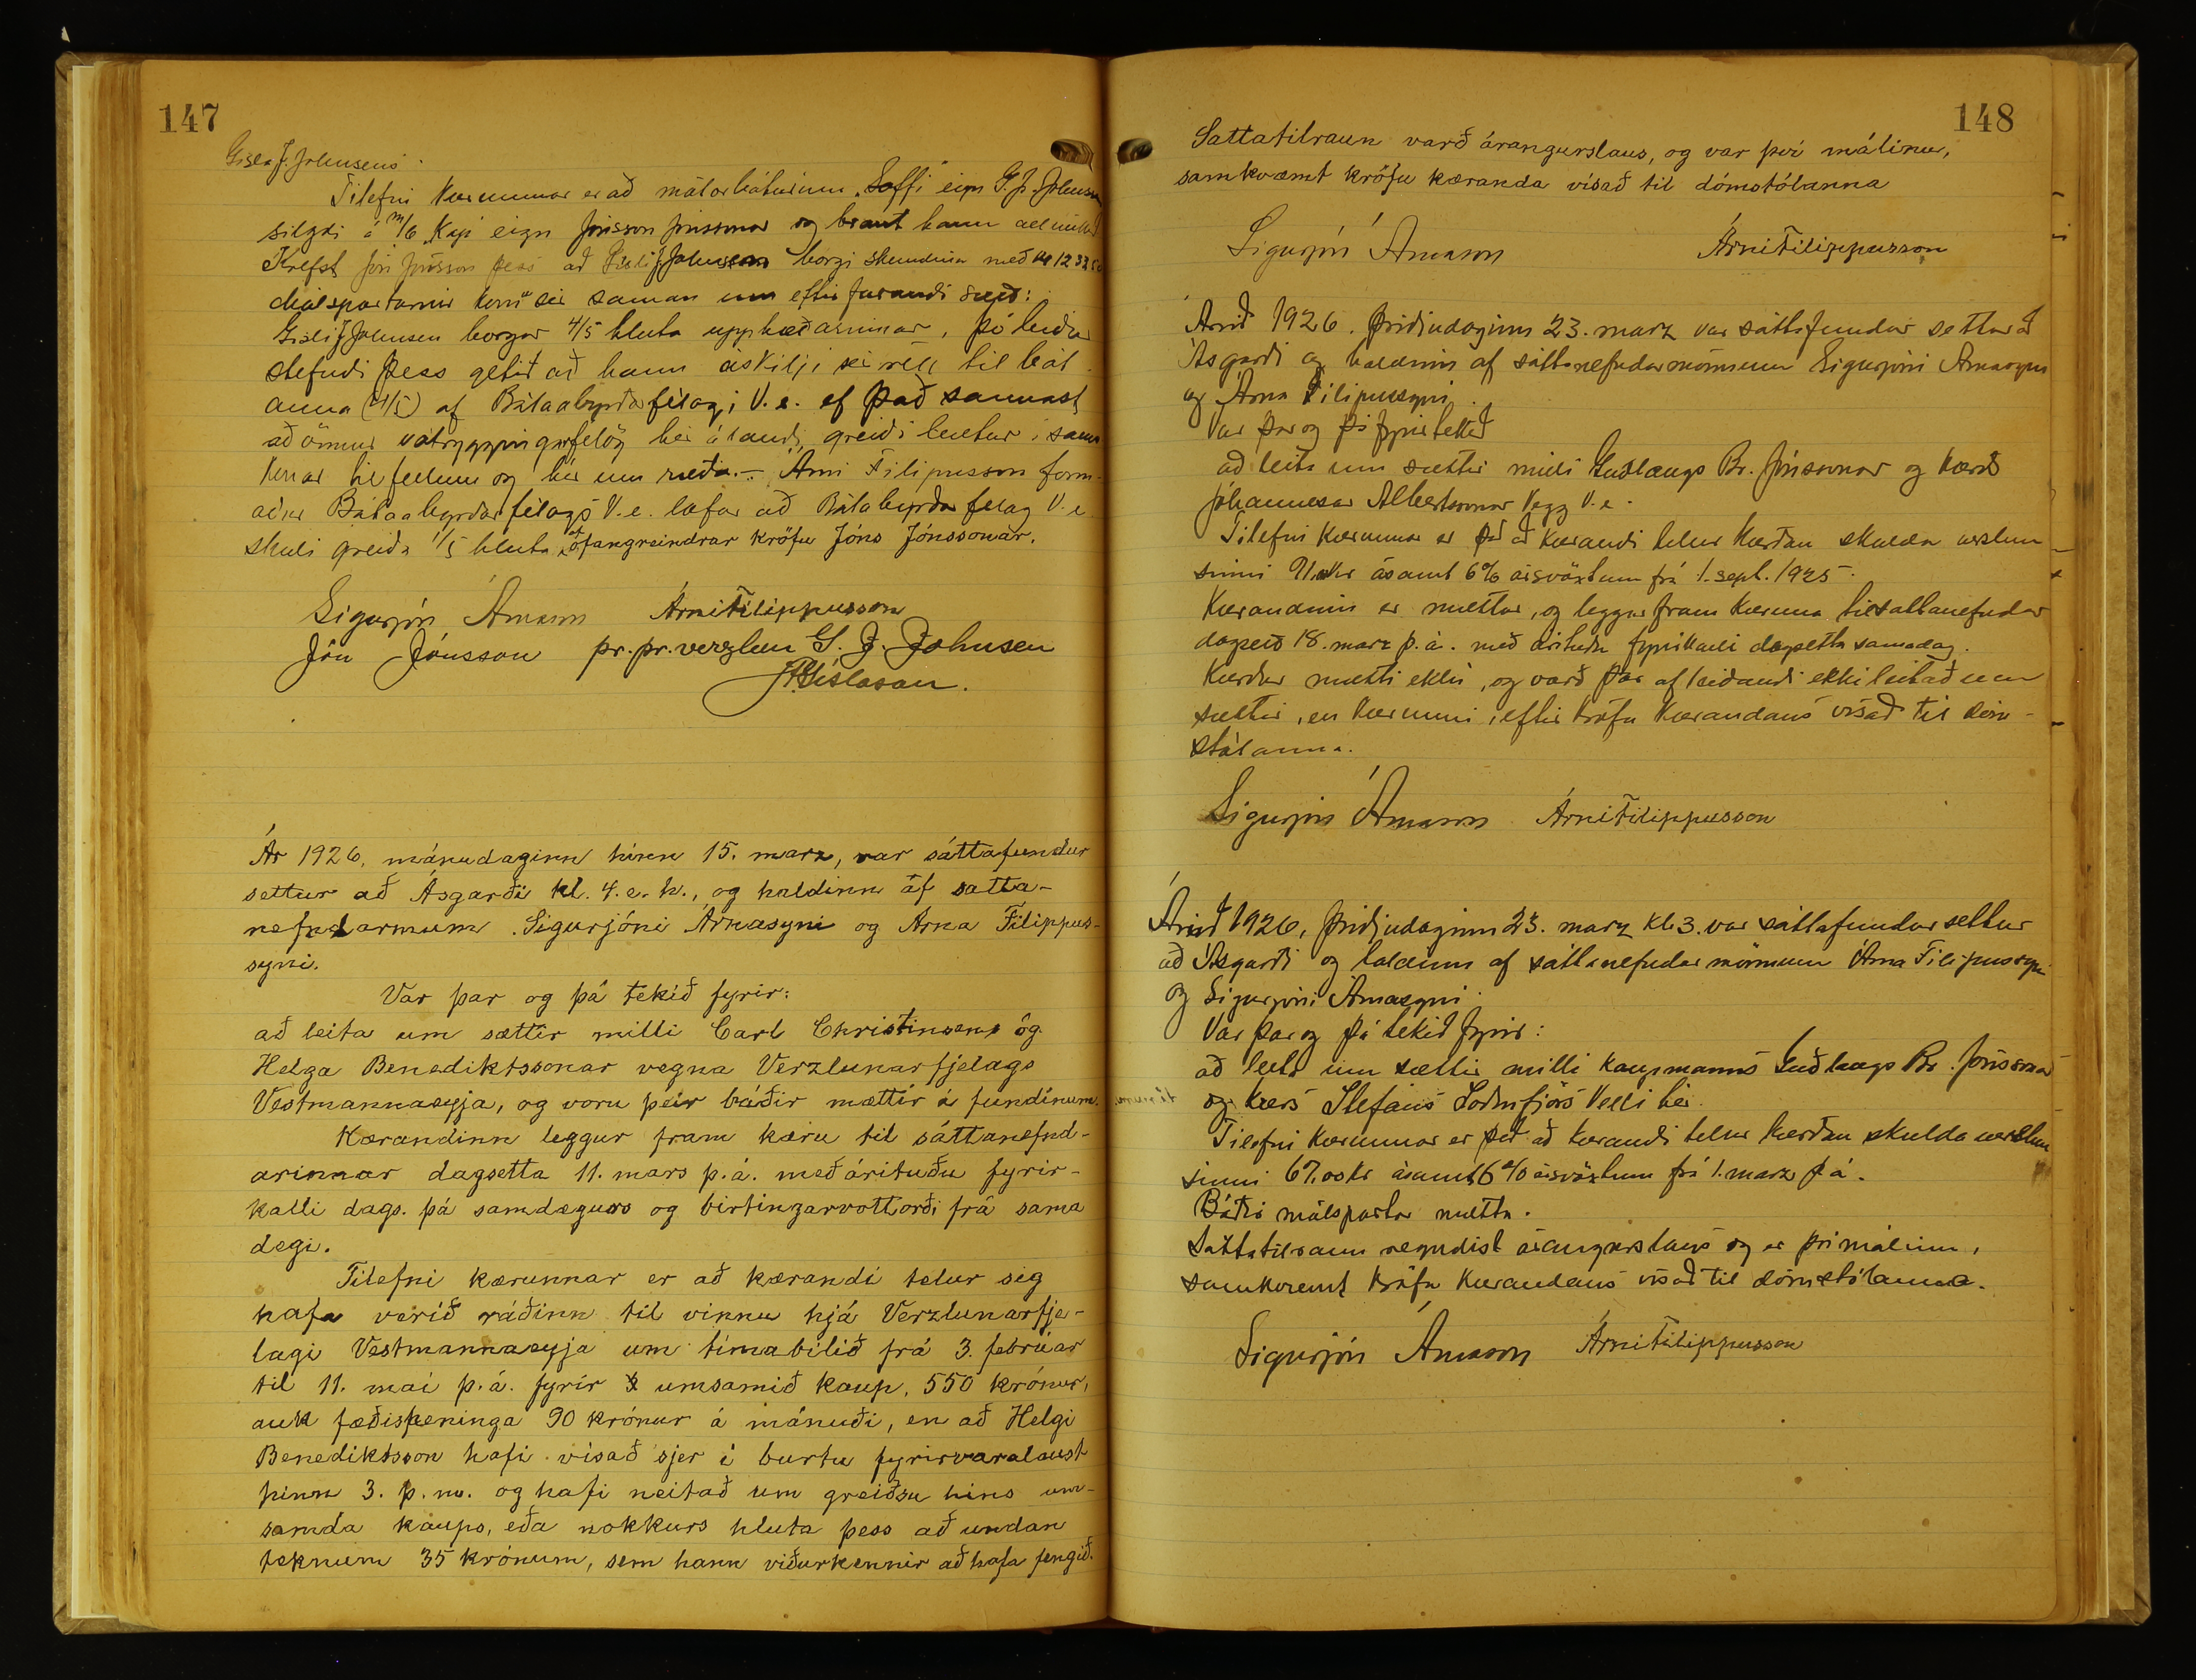 147
Gísla J. Johnsens.
Tilefni kærunnar er að mótorbáturinn "Soffi" eign G. J. Johnsen
sigldi á m/b "Kap" eign Jónsson Jónssonar og braut hann allmikið
Krefst Jón Jónsson þess að Gísli J Johnsen borgi skemdina með kr 1233
Málspartarnir komu sér saman um eftirfarandi sætt:
Gísli J Johnsen borgar 4/5 hluta upphæðarinnar, þó lætur
stefndi þess getið að hann áskilji sér rétt til bót-
anna (4/5) af Bátaábyrðafélagi V.e. ef það sannast
að önnur vátryggingarfélög hér á landi, greiði bætur í sams
konar tilfellum og hér um ræðir. - Árni Filipusson form-
aður Bátaábyrðarfélags V.e. lofar að Bátaábyrðarfélag V.e
skuli greiða 1/5 hluta af ofangreindrar kröfu Jóns Jónssonar.
Sigurjón Árnason Árni Filippusson
Jón Jónsson pr. pr. verzlun G. J. Johnsen
JÞGíslason.
Ár 1926, mánudaginn hinn 15. marz, var sáttafundur
settur að Ásgarði kl. 4. e. h., og haldinn af satta-
nefndarmum. Sigurjóni Árnasyni og Árna Filippus-
syni.
Var þar og þá tekið fyrir:
að leita um sættir milli Carl Christinsens og
Helga Benediktssonar vegna Verzlunarfjelags
Vestmannaeyja, og voru þeir báðir mættir á fundinum.
Kærandinn leggur fram kæru til sáttanefnd-
arinnar dagsetta 11. mars þ.á. með árituðu fyrir-
kalli dags. þá samdægurs og birtingarvottorði frá sama
degi.
Tilefni kærunnar er að kærandi telur sig
hafa verið ráðinn til vinnu hjá Verzlunarfje-
lagi Vestmannaeyja um tímabilið frá 3. febrúar
til 11. maí þ.á. fyrir umsamið kaup, 550 krónur,
auk fæðispeninga 90 krónur á mánuði, en að Helgi
Benediktsson hafi vísað sjer í burtu fyrirvaralaust
þinn 3. þ.m. og hafi neitað um greiðsu hins um-
samda kaups, eða nokkurs hluta þess að undan
teknum 35 krónum, sem hann viðurkennir að hafa fengið.
148
Sattatilraun varð árangurslaus, og var því málinu,
samkvæmt kröfu kæranda vísað til dómstólanna
Sigurjón Árnason Árni Filippusson
Árið 1926. Þriðjudaginn 23. marz var sáttafundur settur að
Ásgarði og haldinn af sáttanefndarmönnum Sigurjóni Árnasyni
og Árna Filipussyni.
Var þar og þá fyrirtekið
að leita um sættir milli Guðlaugs Br. Jónssonar og kærðs
Jóhannesar Albertssonar Vegg V.e.
Tilefni kærunnar er það að kærandi telur kærðan skulda verslun
sinni 91 kr ásamt 6% ársvöxtum frá 1. sept. 1925.
Kærandinn er mættur, og leggur fram kæruna til sáttanefndar
dagsett 18. marz þ.á. með árituðu fyrirkalli dagsettu samadag.
Kærður mætti ekki, og varð þar af leiðandi ekki leitað um
sættir, en kærunni, eftir kröfu kærandans vísað til dóm-
stólanna.
Sigurjón Árnason Árni Filippusson
Árið 1926, þriðjudaginn 23. marz kl. 3. var sáttafundur settur
að Ásgarði og haldinn af sáttanefndarmönnum Árna Filipussyni
og Sigurjóni Árnasyni.
Var þar og þá tekið fyrir:
að leita um sættir milli kaupmanns Guðlaugs Br. Jónssonar
og kærðs Stefáns Loðmfjörs Velli hér.
Tilefni kærunnar er það að kærandi telur kærðan skulda verslun
sinni 67,00 kr ásamt 6% ársvöxtum frá 1. marz þ á.
Báðir málspartar mættu.
Sáttatilraun reyndist árangurslaus og er því málinu,
samkvæmt kröfu kærandans vísað til dómstólanna.
Sigurjón Árnason Árni Filippusson